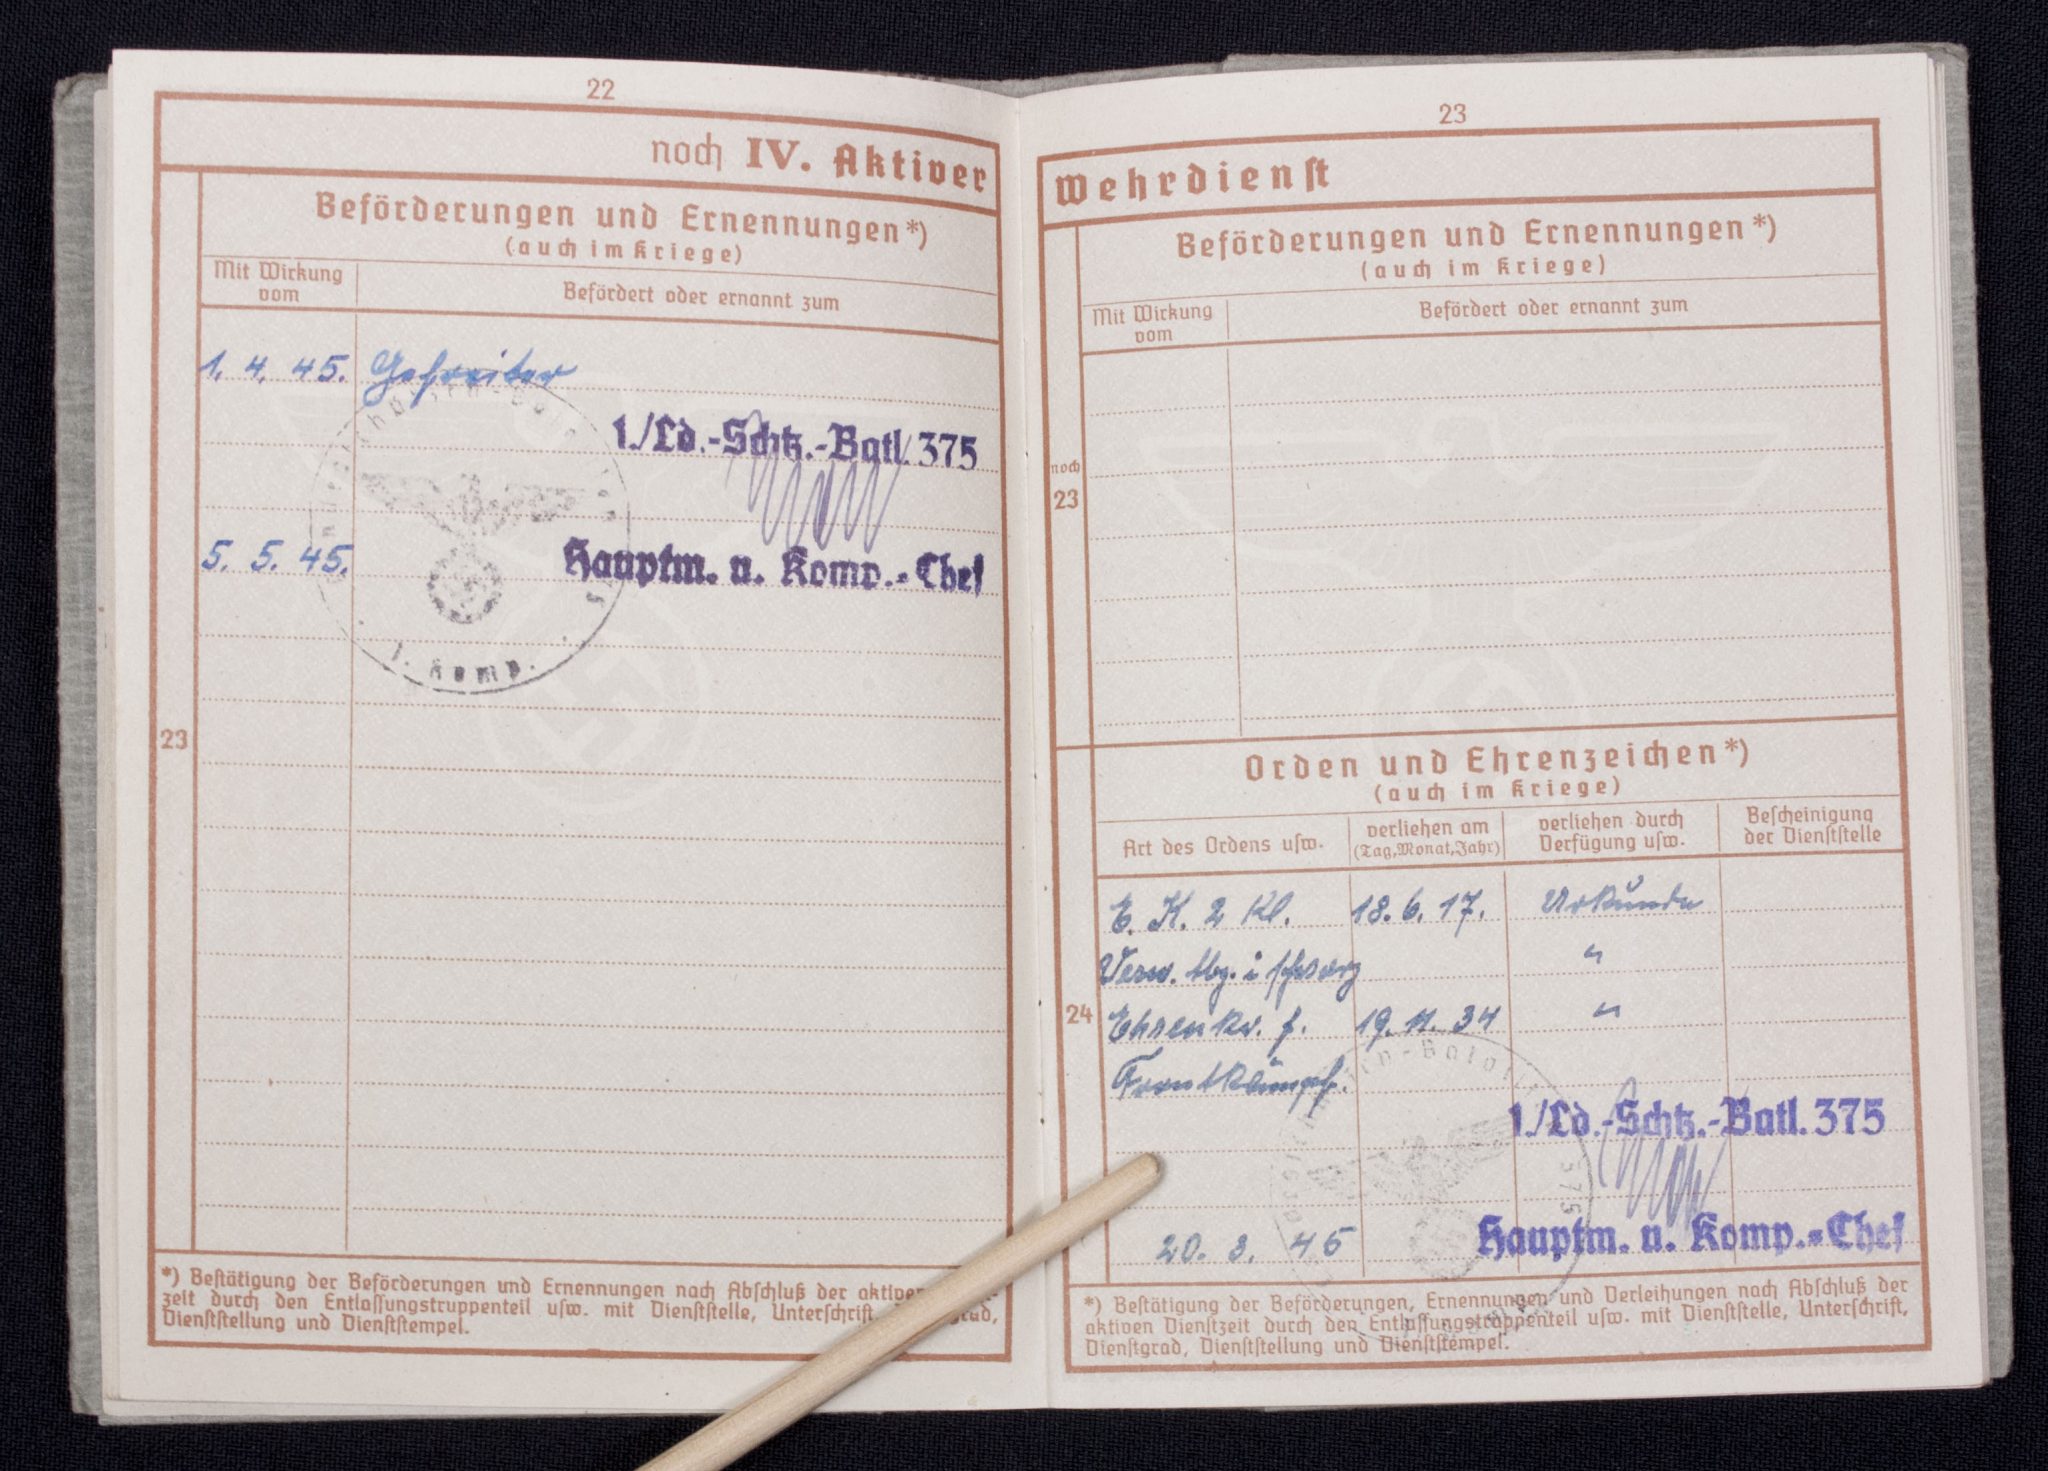 22
noch IV. Aktiver
Beförderungen und Ernennungen*)
(auch im Kriege)
Mit Wirkung
vom
Befördert oder ernannt zum
1. 4. 45. Gefreiter
1./Ld.-Schtz.-Batl. 375
5. 5. 45.
Hauptm. u. Komp.-Chef
1. Komp.
23
*) Bestätigung der Beförderungen und Ernennungen nach Abschluß der aktiven
zeit durch den Entlassungstruppenteil usw. mit Dienststelle, Unterschrift,
Dienststellung und Dienststempel.
23
Wehrdienst
Beförderungen und Ernennungen*)
(auch im Kriege)
Mit Wirkung
vom
Befördert oder ernannt zum
noch
23
Orden und Ehrenzeichen*)
(auch im Kriege)
Art des Ordens usw.
verliehen am
(Tag, Monat, Jahr)
verliehen durch
Verfügung usw.
Bescheinigung
der Dienststelle
E. K. 2 Kl. 18. 6. 17. Urkunde
Verw. Abz. i schwarz "
24
Ehrenkr. f. 19. 11. 34 "
Frontkämpf.
1./Ld.-Schtz.-Batl. 375
20. 3. 45
Hauptm. u. Komp.-Chef
*) Bestätigung der Beförderungen, Ernennungen und Verleihungen nach Abschluß der
aktiven Dienstzeit durch den Entlassungstruppenteil usw. mit Dienststelle, Unterschrift,
Dienstgrad, Dienststellung und Dienststempel.